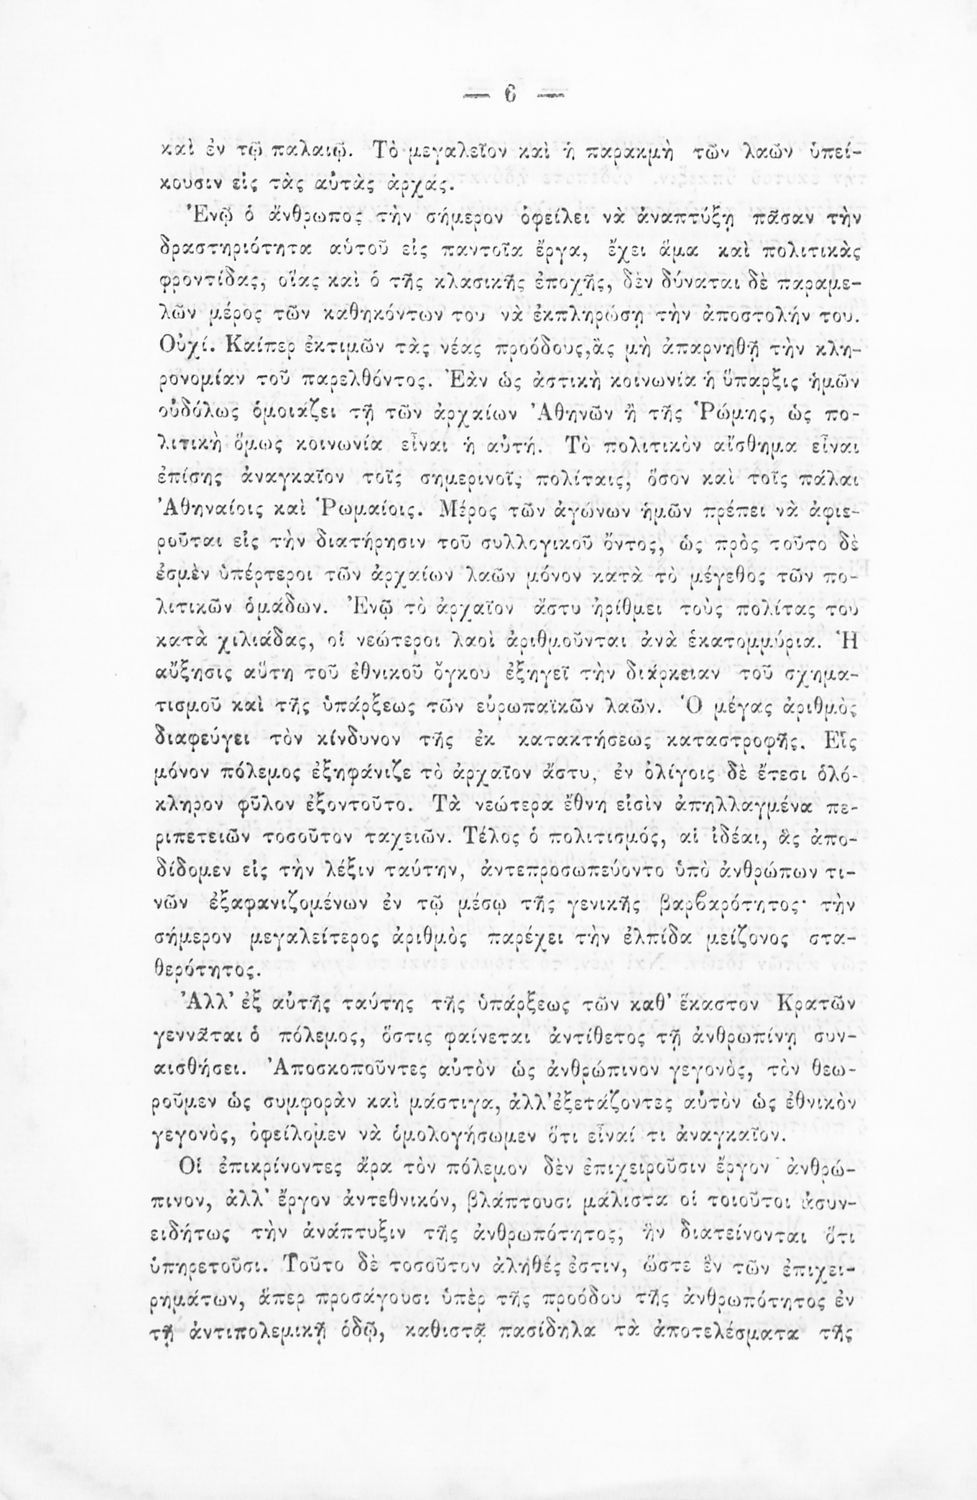 — 6 —
καὶ ἐν τῷ παλαιῷ. Τὸ μεγαλεῖον καὶ ἡ παρακμὴ τῶν λαῶν ὑπεί-
κουσιν εἰς τὰς αὐτὰς ἀρχάς.
Ἐνῷ ὁ ἄνθρωπος τὴν σήμερον ὀφείλει νὰ ἀναπτύξῃ πᾶσαν τὴν
δραστηριότητα αὐτοῦ εἰς παντοῖα ἔργα, ἔχει ἅμα καὶ πολιτικὰς
φροντίδας, οἵας καὶ ὁ τῆς κλασικῆς ἐποχῆς, δὲν δύναται δὲ παραμε-
λῶν μέρος τῶν καθηκόντων του νὰ ἐκπληρώσῃ τὴν ἀποστολήν του.
Οὐχί. Καίπερ ἐκτιμῶν τὰς νέας προόδους, ἂς μὴ ἀπαρνηθῇ τὴν κλη-
ρονομίαν τοῦ παρελθόντος. Ἐὰν ὡς ἀστικὴ κοινωνία ἡ ὕπαρξις ἡμῶν
οὐδόλως ὁμοιάζει τῇ τῶν ἀρχαίων Ἀθηνῶν ἢ τῆς Ῥώμης, ὡς πο-
λιτικὴ ὅμως κοινωνία εἶναι ἡ αὐτή. Τὸ πολιτικὸν αἴσθημα εἶναι
ἐπίσης ἀναγκαῖον τοῖς σημερινοῖς πολίταις, ὅσον καὶ τοῖς πάλαι
Ἀθηναίοις καὶ Ῥωμαίοις. Μέρος τῶν ἀγώνων ἡμῶν πρέπει νὰ ἀφιε-
ροῦται εἰς τὴν διατήρησιν τοῦ συλλογικοῦ ὄντος, ὡς πρὸς τοῦτο δὲ
ἐσμὲν ὑπέρτεροι τῶν ἀρχαίων λαῶν μόνον κατὰ τὸ μέγεθος τῶν πο-
λιτικῶν ὁμάδων. Ἐνῷ τὸ ἀρχαῖον ἄστυ ἠρίθμει τοὺς πολίτας του
κατὰ χιλιάδας, οἱ νεώτεροι λαοὶ ἀριθμοῦνται ἀνὰ ἑκατομμύρια. Ἡ
αὔξησις αὕτη τοῦ ἐθνικοῦ ὄγκου ἐξηγεῖ τὴν διάρκειαν τοῦ σχημα-
τισμοῦ καὶ τῆς ὑπάρξεως τῶν εὐρωπαϊκῶν λαῶν. Ὁ μέγας ἀριθμὸς
διαφεύγει τὸν κίνδυνον τῆς ἐκ κατακτήσεως καταστροφῆς. Εἷς
μόνον πόλεμος ἐξηφάνιζε τὸ ἀρχαῖον ἄστυ, ἐν ὀλίγοις δὲ ἔτεσι ὁλό-
κληρον φῦλον ἐξοντοῦτο. Τὰ νεώτερα ἔθνη εἰσὶν ἀπηλλαγμένα πε-
ριπετειῶν τοσοῦτον ταχειῶν. Τέλος ὁ πολιτισμός, αἱ ἰδέαι, ἃς ἀπο-
δίδομεν εἰς τὴν λέξιν ταύτην, ἀντεπροσωπεύοντο ὑπὸ ἀνθρώπων τι-
νῶν ἐξαφανιζομένων ἐν τῷ μέσῳ τῆς γενικῆς βαρβαρότητος· τὴν
σήμερον μεγαλείτερος ἀριθμὸς παρέχει τὴν ἐλπίδα μείζονος στα-
θερότητος.
Ἀλλ’ ἐξ αὐτῆς ταύτης τῆς ὑπάρξεως τῶν καθ’ ἕκαστον Κρατῶν
γεννᾶται ὁ πόλεμος, ὅστις φαίνεται ἀντίθετος τῇ ἀνθρωπίνῃ συν-
αισθήσει. Ἀποσκοποῦντες αὐτὸν ὡς ἀνθρώπινον γεγονὸς, τὸν θεω-
ροῦμεν ὡς συμφορὰν καὶ μάστιγα, ἀλλ’ἐξετάζοντες αὐτὸν ὡς ἐθνικὸν
γεγονὸς, ὀφείλομεν νὰ ὁμολογήσωμεν ὅτι εἶναί τι ἀναγκαῖον.
Οἱ ἐπικρίνοντες ἄρα τὸν πόλεμον δὲν ἐπιχειροῦσιν ἔργον ἀνθρώ-
πινον, ἀλλ’ ἔργον ἀντεθνικόν, βλάπτουσι μάλιστα οἱ τοιοῦτοι ἀσυν-
ειδήτως τὴν ἀνάπτυξιν τῆς ἀνθρωπότητος, ἣν διατείνονται ὅτι
ὑπηρετοῦσι. Τοῦτο δὲ τοσοῦτον ἀληθές ἐστιν, ὥστε ἓν τῶν ἐπιχει-
ρημάτων, ἅπερ προσάγουσι ὑπὲρ τῆς προόδου τῆς ἀνθρωπότητος ἐν
τῇ ἀντιπολεμικῇ ὁδῷ, καθιστᾷ πασίδηλα τὰ ἀποτελέσματα τῆς